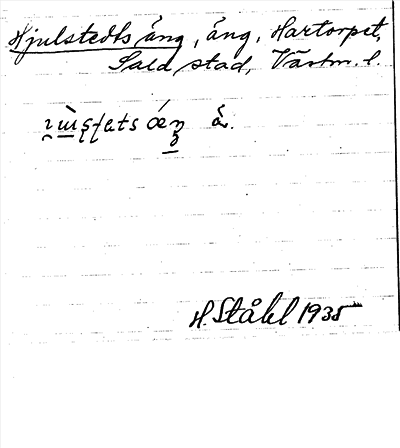 Hjulstedts äng, äng, Hartorpet,
Sala stad, Västm. l.
å.
H. Ståhl 1935